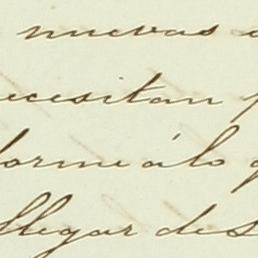 nuevas
ecesitan
forme á lo
llegar des